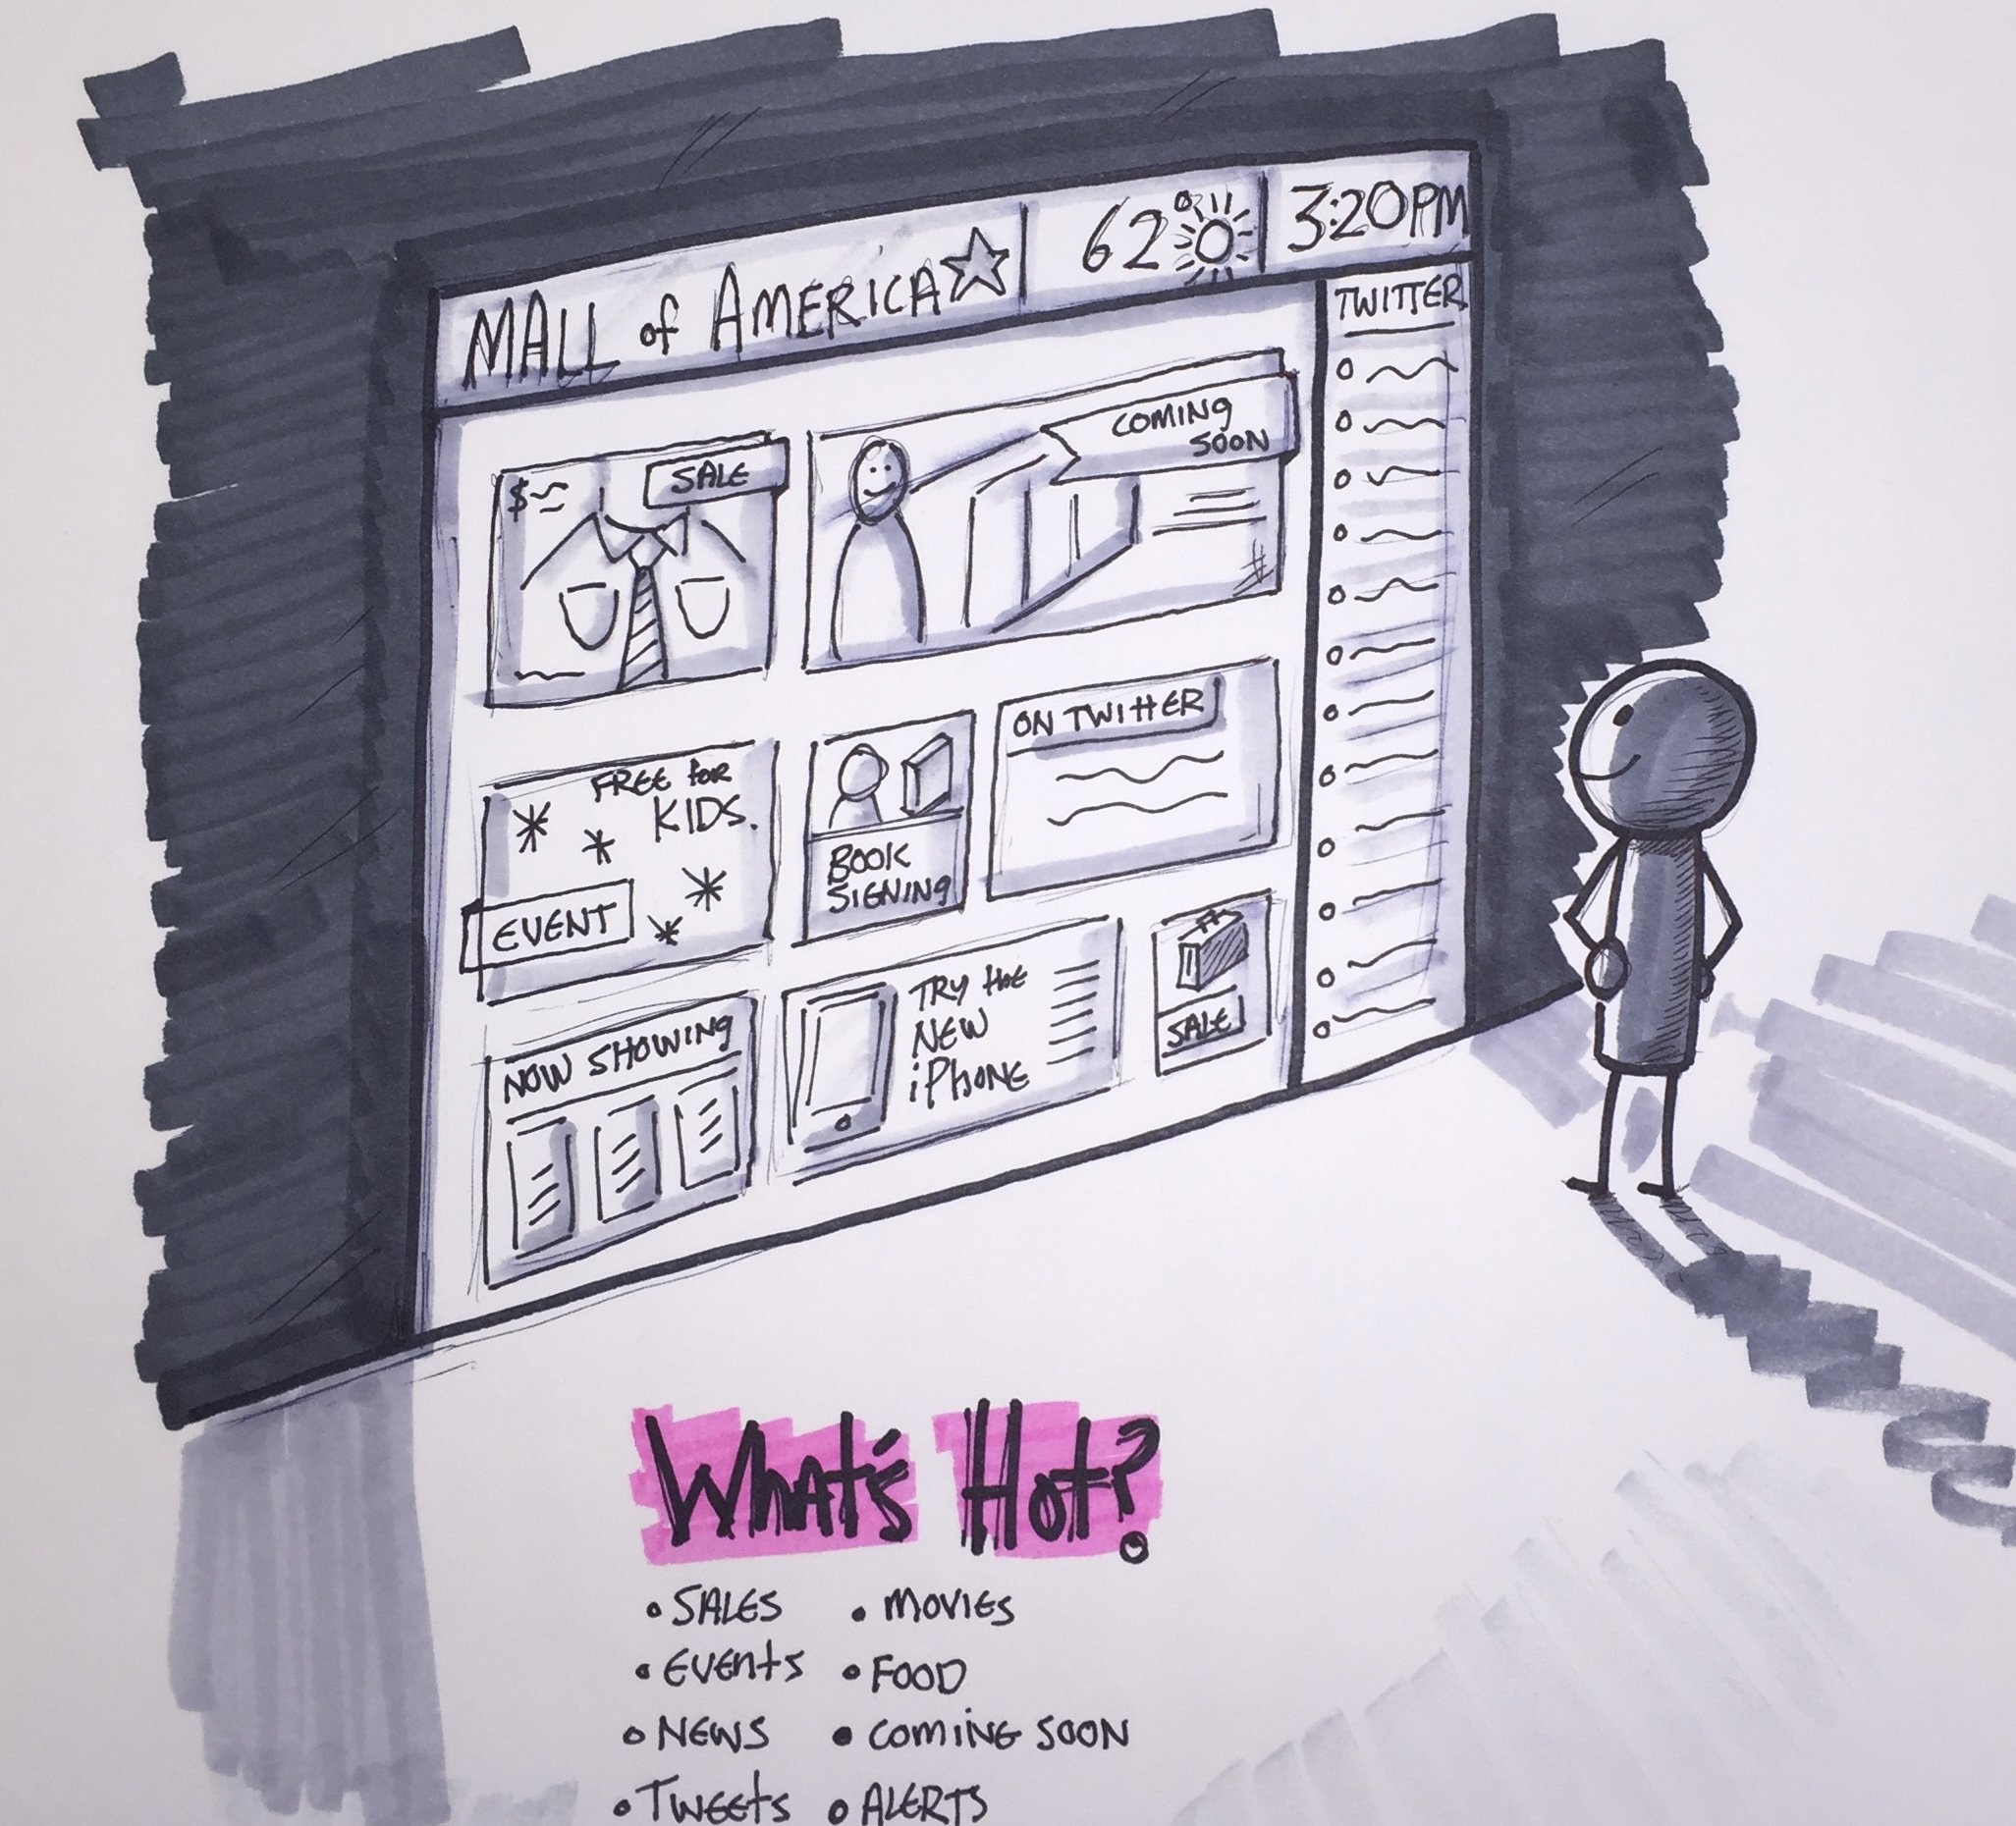 MALL of AMERICA
62°
3:20PM
TWITTER
$
SALE
COMING
SOON
FREE for
KIDS.
EVENT
BOOK
SIGNING
ON TWITTER
NOW SHOWING
TRY the
NEW
iPHONE
SALE
What's Hot?
• SALES • MOVIES
• EVENTS • FOOD
• NEWS • COMING SOON
• TWEETS • ALERTS